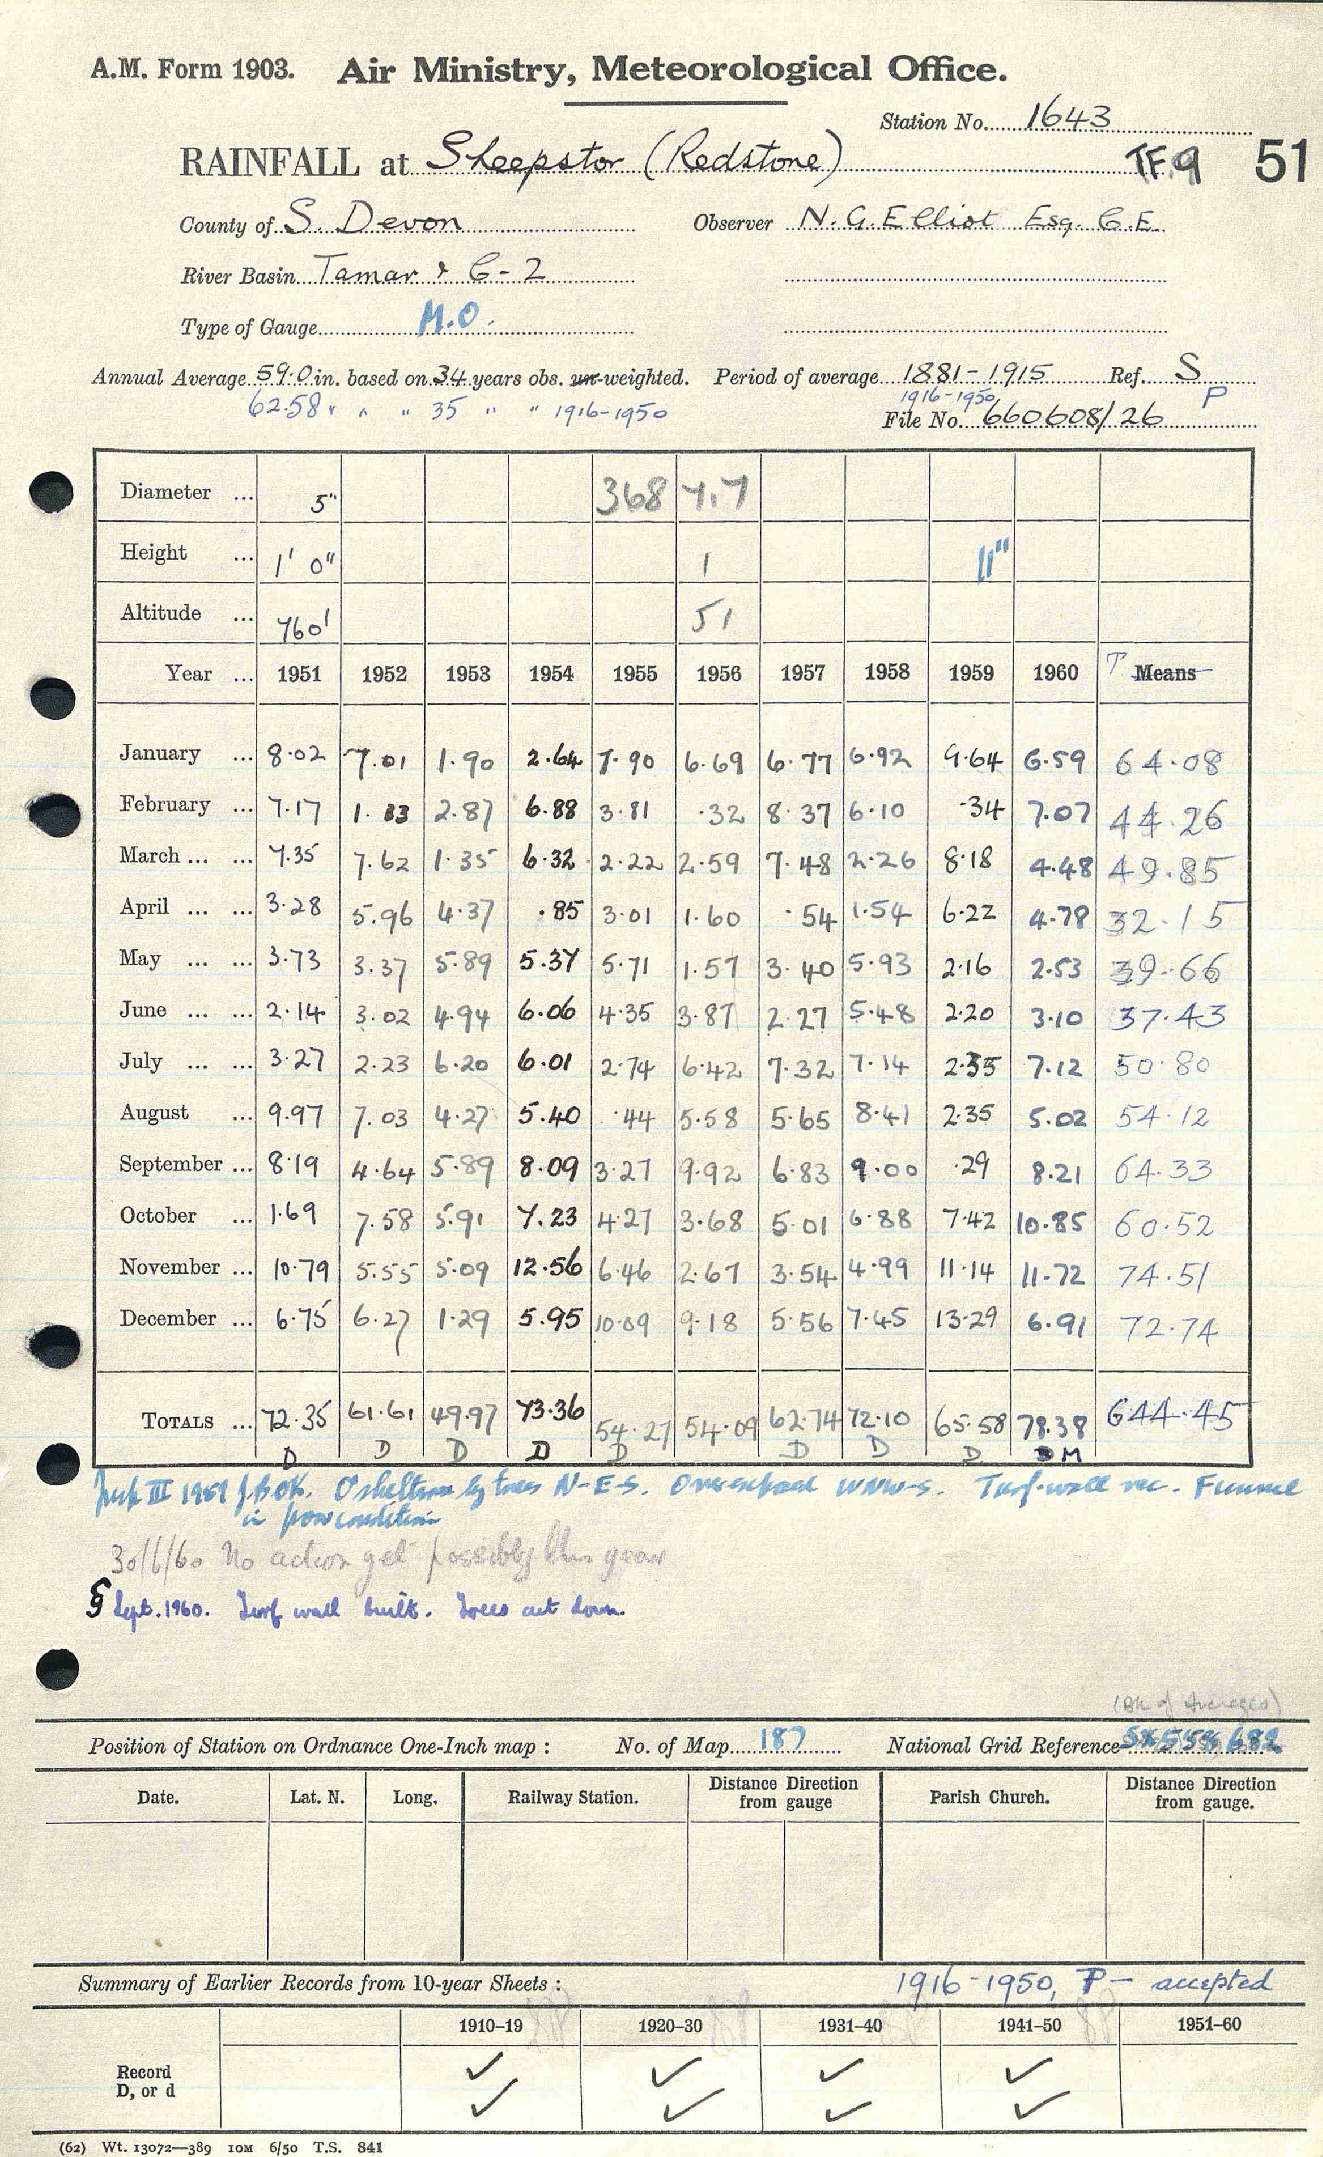 A.M. Form 1903. Air Ministry, Meteorological Office.
Station No. 1643
RAINFALL at Sheepstor (Redstone) TF9 51
County of S. Devon Observer N. G. Elliot Esq. C.E.
River Basin Tamar & C-2
Type of Gauge M.O.
Annual Average 59.0 in. based on 34 years obs. un-weighted. Period of average 1881-1915 Ref. S
62.58 " " " 35 " " 1916-1950 1916-1950 P
File No. 660608/26
Diameter ... 5" 368 7.7
Height ... 1' 0" 1 11"
Altitude ... 760' 51
Year ... 1951 1952 1953 1954 1955 1956 1957 1958 1959 1960 T Means
January ... 8.02 7.01 1.90 2.64 7.90 6.69 6.77 6.92 9.64 6.59 64.08
February ... 7.17 1.33 2.87 6.88 3.81 .32 8.37 6.10 .34 7.07 44.26
March ... ... 7.35 7.62 1.35 6.32 2.22 2.59 7.48 2.26 8.18 4.48 49.85
April ... ... 3.28 5.96 4.37 .85 3.01 1.60 .54 1.54 6.22 4.78 32.15
May ... ... 3.73 3.37 5.89 5.37 5.71 1.57 3.40 5.93 2.16 2.53 39.66
June ... ... 2.14 3.02 4.94 6.06 4.35 3.87 2.27 5.48 2.20 3.10 37.43
July ... ... 3.27 2.23 6.20 6.01 2.74 6.42 7.32 7.14 2.35 7.12 50.80
August ... 9.97 7.03 4.27 5.40 .44 5.58 5.65 8.41 2.35 5.02 54.12
September ... 8.19 4.64 5.89 8.09 3.27 9.92 6.83 9.00 .29 8.21 64.33
October ... 1.69 7.58 5.91 7.23 4.27 3.68 5.01 6.88 7.42 10.85 60.52
November ... 10.79 5.55 5.09 12.56 6.46 2.67 3.54 4.99 11.14 11.72 74.51
December ... 6.75 6.27 1.29 5.95 10.09 9.18 5.56 7.45 13.29 6.91 72.74
TOTALS ... 72.35 61.61 49.97 73.36 54.27 54.09 62.74 72.10 65.58 78.38 644.45
D D D D D D D D M
III 1959 O'sheltered by trees N-E-S. Overexposed WNW-S. Turf-wall rec. Funnel
in poor condition
30/6/60 No action yet possibly this year
§ Sept. 1960. Turf wall built. Trees cut down.
(Bk of Averages)
Position of Station on Ordnance One-Inch map : No. of Map 187 National Grid Reference
Date. Lat. N. Long. Railway Station. Distance Direction from gauge Parish Church. Distance Direction from gauge.
Summary of Earlier Records from 10-year Sheets : 1916-1950, P - accepted
1910–19 1920–30 1931–40 1941–50 1951–60
Record ✓ ✓ ✓ ✓
D, or d ✓ ✓ ✓ ✓
(62) Wt. 13072—389 10M 6/50 T.S. 841